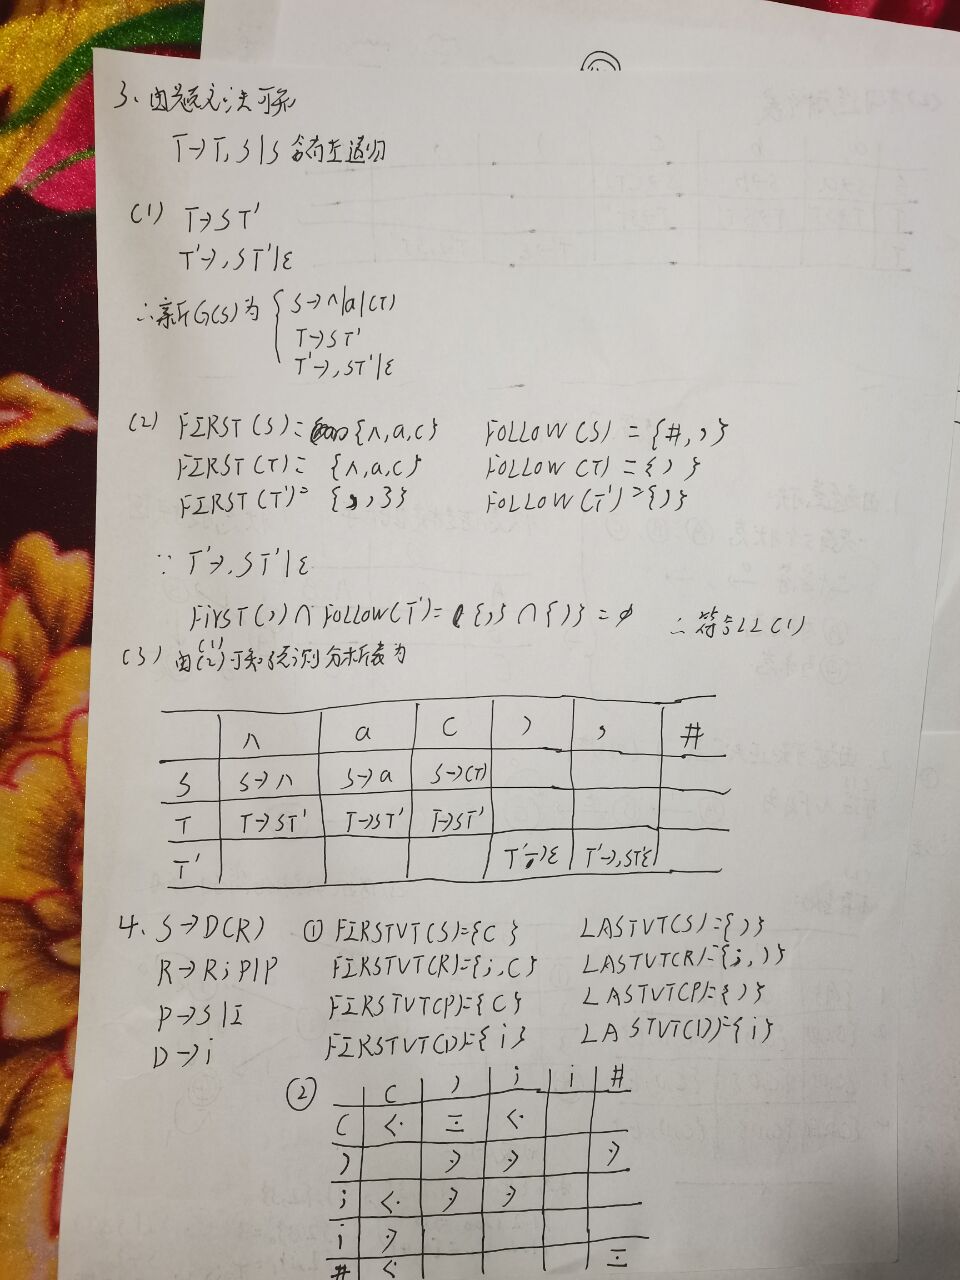 3、由题无法可知
T→T,S|S 含有左递归
(1) T→ST'
T'→,ST'|ε
∴新G(S)为 { S→∧|a|(T)
T→ST'
T'→,ST'|ε
(2) FIRST(S)= {∧,a,(} FOLLOW(S) = {#,,}
FIRST(T)= {∧,a,(} FOLLOW(T) = {)}
FIRST(T')= {,,ε} FOLLOW(T')={)}
∵ T'→,ST'|ε
FIRST(,)∩FOLLOW(T')= {,}∩{)} =∅ ∴符合LL(1)
(3) 由(1)(2)可知预测分析表为
∧ a ( ) , #
S S→∧ S→a S→(T)
T T→ST' T→ST' T→ST'
T' T'→ε T'→,ST'ε
4. S→D(R) ① FIRSTVT(S)={(} LASTVT(S)={)}
R→R;P|P FIRSTVT(R)={;,(} LASTVT(R)={;,)}
P→S|I FIRSTVT(P)={(} LASTVT(P)={)}
D→i FIRSTVT(D)={i} LASTVT(D)={i}
② ( ) ; i #
( ⋖ ≐ ⋖
) ⋗ ⋗ ⋗
; ⋖ ⋗ ⋗
i ⋗
# ⋖ ≐